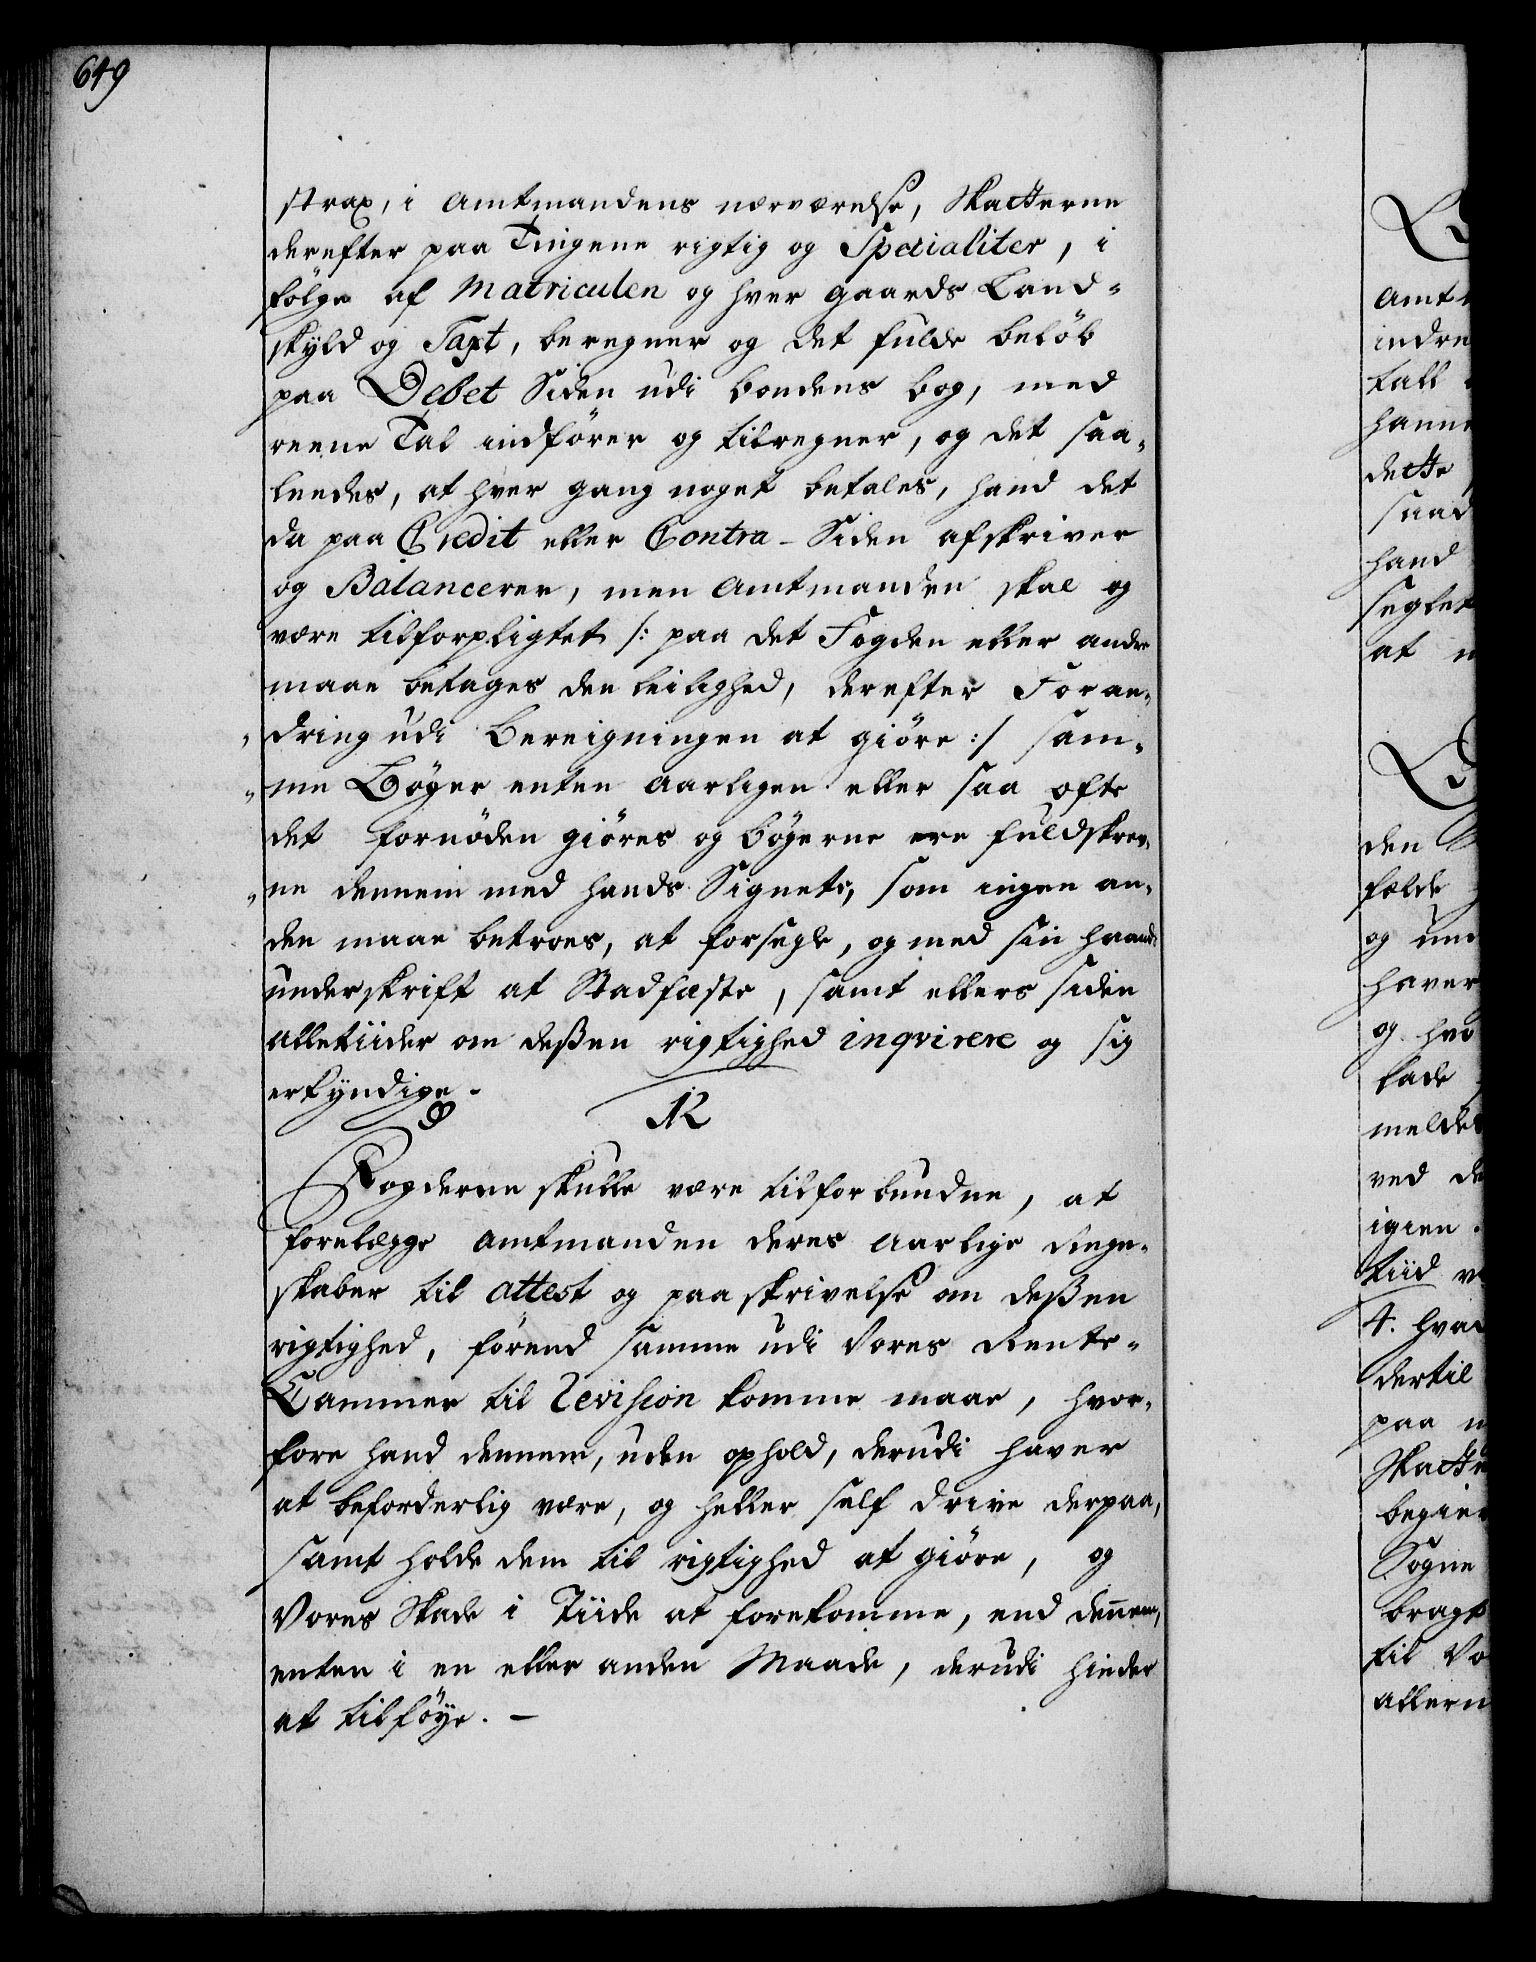 649
strax, i Amtmandens nærværelse, Skatterne
derefter paa Tingene rigtig og Specialiter, i
følge af Matriculen og hver gaards Land-
skyld og Taxt, beregner og det fulde beløb
paa Debet Siden udi bondens bog, med
reene Tal indfører og tilregner, og det saa-
leedes, at hver gang noget betales, hand det
da paa Credit eller Contra-Siden afskriver
og Balancerer, men Amtmanden skal og
være tilforpligtet /: paa det Fogden eller andre
maae betages den leilighed, derefter Foran-
dring udi Bereigningen at giöre :/ sam-
me Bøger enten Aarligen eller saa ofte
det fornöden giöres og bögerne ere fuldskrev-
ne dennem med hands Signete, som ingen an-
den maae betroes, at forsegle, og med sin haand-
underskrift at Stadfæste, samt ellers siden
alletiider om deßen rigtighed inqvirere og sig
erkyndige.
12
Fogderne skulle være tilforbundne, at
forelegge Amtmanden deres Aarlige Regn-
skaber til attest og paaskrivelse om deßen
rigtighed, förend samme udi Vores Rente-
Cammer til Revision komme maae, hvor-
fore hand dennem, uden ophold, derudi haver
at beforderlig være, og heller self drive derpaa,
samt holde dem til rigtighed at giöre, og
Vores Skade i Tiide at forekomme, end dennem,
enten i en eller anden Maade, derudi hinder
at tilföye. -
Amt
indre
tall
hann
dette
saad
hand
seglet
at
den
og
haver
og hvo
melde
ved de
igien.
tiid
4. hvad
dertil
paa
Skatte
begier
Sogne
bragt
til Vo
allern